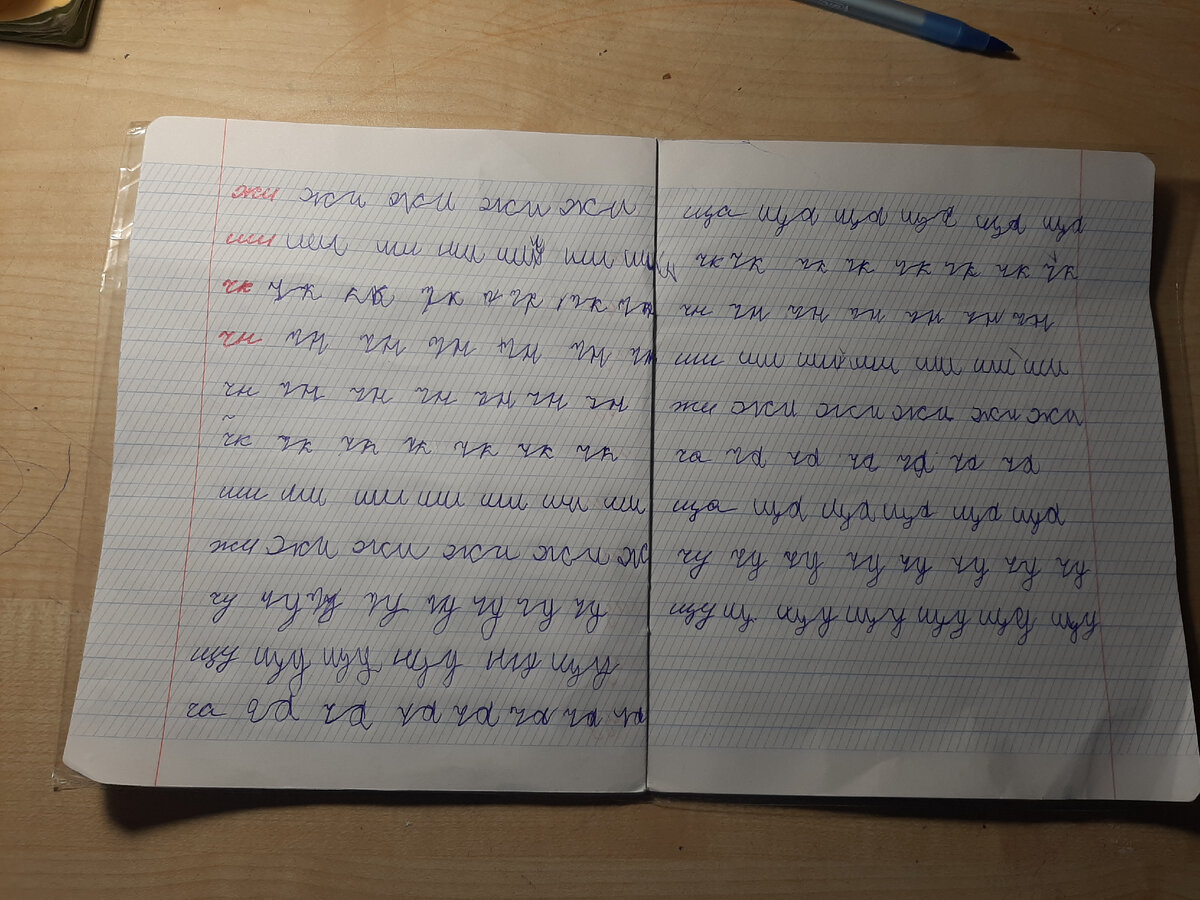 жи жи жи жи жи
ши ши ши ши ши ши ши
чк чк чк чк чк чк чк
чн чн чн чн чн чн чн
чн чн чн чн чн чн чн
чк чк чк чк чк чк чк
ши ши ши ши ши ши ши
жи жи жи жи жи ж
чу чу чу чу чу чу чу чу
щу щу щу щу щу щу
ча ча ча ча ча ча ча ча
ща ща ща ща ща ща
чк чк чк чк чк чк чк чк
чн чн чн чн чн чн чн
ши ши ши ши ши ши ши
жи жи жи жи жи жи
ча ча ча ча ча ча ча
ща ща ща ща ща ща
чу чу чу чу чу чу чу чу
щу щ. щу щу щу щу щу